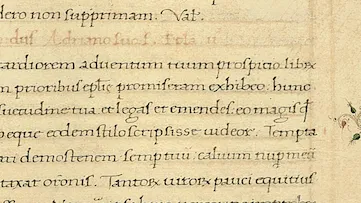 dero non supprimam. Val.
Adriano suo S.
tardiorem adventum tuum prospicio libr
m prioribus epl̅is promiseram exhibeo. hunc
suetudine tua et legas et emendes. eo magis q
peque eodem stilo scripsisse videor. Tempta
ari demostenem semp tuu̅. calvum nup meu̅
taxat or̅onis. Tantoꝝ viroꝝ pauci equitius